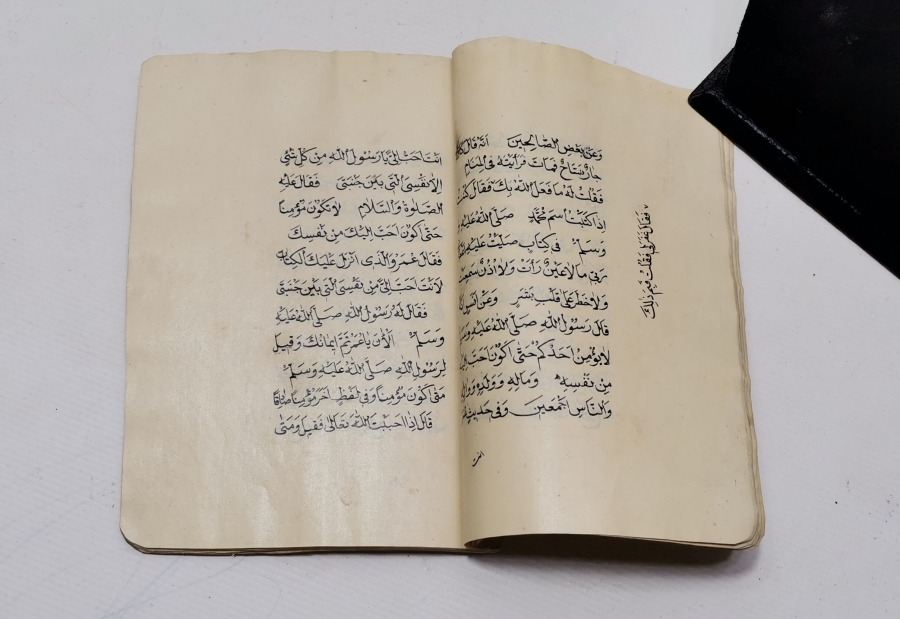 وَعَنْ بَعْضِ الصَّالِحِينَ اَنَّهُ قَالَ كَانَ
جَارٌ نَسَّاخٌ فَمَاتَ فَرَاَيْتُهُ فِى الْمَنَامِ
فَقُلْتُ لَهُ مَا فَعَلَ اللّٰهُ بِكَ فَقَالَ كُنْتُ
اِذَا كَتَبْتُ اسْمَ مُحَمَّدٍ صَلَّى اللّٰهُ عَلَيْهِ
وَسَلَّمَ فِى كِتَابٍ صَلَّيْتُ عَلَيْهِ
رَبِّى مَا لَا عَيْنٌ رَاَتْ وَلَا اُذُنٌ سَمِعَتْ
وَلَا خَطَرَ عَلَى قَلْبِ بَشَرٍ وَعَنْ اَنَسٍ
قَالَ رَسُولُ اللّٰهِ صَلَّى اللّٰهُ عَلَيْهِ
لَا يُؤْمِنُ اَحَدُكُمْ حَتّٰى اَكُونَ اَحَبَّ
مِنْ نَفْسِهِ وَمَالِهِ وَوَلَدِهِ
وَالنَّاسِ اَجْمَعِينَ وَفِى حَدِيثِ
انت
فَقَالَ غَفَرَ لِى فَقُلْتُ فَبِمَ ذٰلِكَ
اَنْتَ اَحَبُّ اِلَىَّ يَا رَسُولَ اللّٰهِ مِنْ كُلِّ شَىْءٍ
اِلَّا نَفْسِىَ الَّتِى بَيْنَ جَنْبَىَّ فَقَالَ عَلَيْهِ
الصَّلٰوةُ وَالسَّلَامُ لَا تَكُونُ مُؤْمِنًا
حَتّٰى اَكُونَ اَحَبَّ اِلَيْكَ مِنْ نَفْسِكَ
فَقَالَ عُمَرُ وَالَّذِى اَنْزَلَ عَلَيْكَ الْكِتَابَ
لَاَنْتَ اَحَبُّ اِلَىَّ مِنْ نَفْسِىَ الَّتِى بَيْنَ جَنْبَىَّ
فَقَالَ لَهُ رَسُولُ اللّٰهِ صَلَّى اللّٰهُ عَلَيْهِ
وَسَلَّمَ اَلْاٰنَ يَا عُمَرُ تَمَّ اِيمَانُكَ وَقِيلَ
لِرَسُولِ اللّٰهِ صَلَّى اللّٰهُ عَلَيْهِ وَسَلَّمَ
مَتٰى اَكُونُ مُؤْمِنًا وَفِى لَفْظٍ اٰخَرَ مُؤْمِنًا صَادِقًا
قَالَ اِذَا اَحْبَبْتَ اللّٰهَ تَعَالٰى فَقِيلَ وَمَتٰى